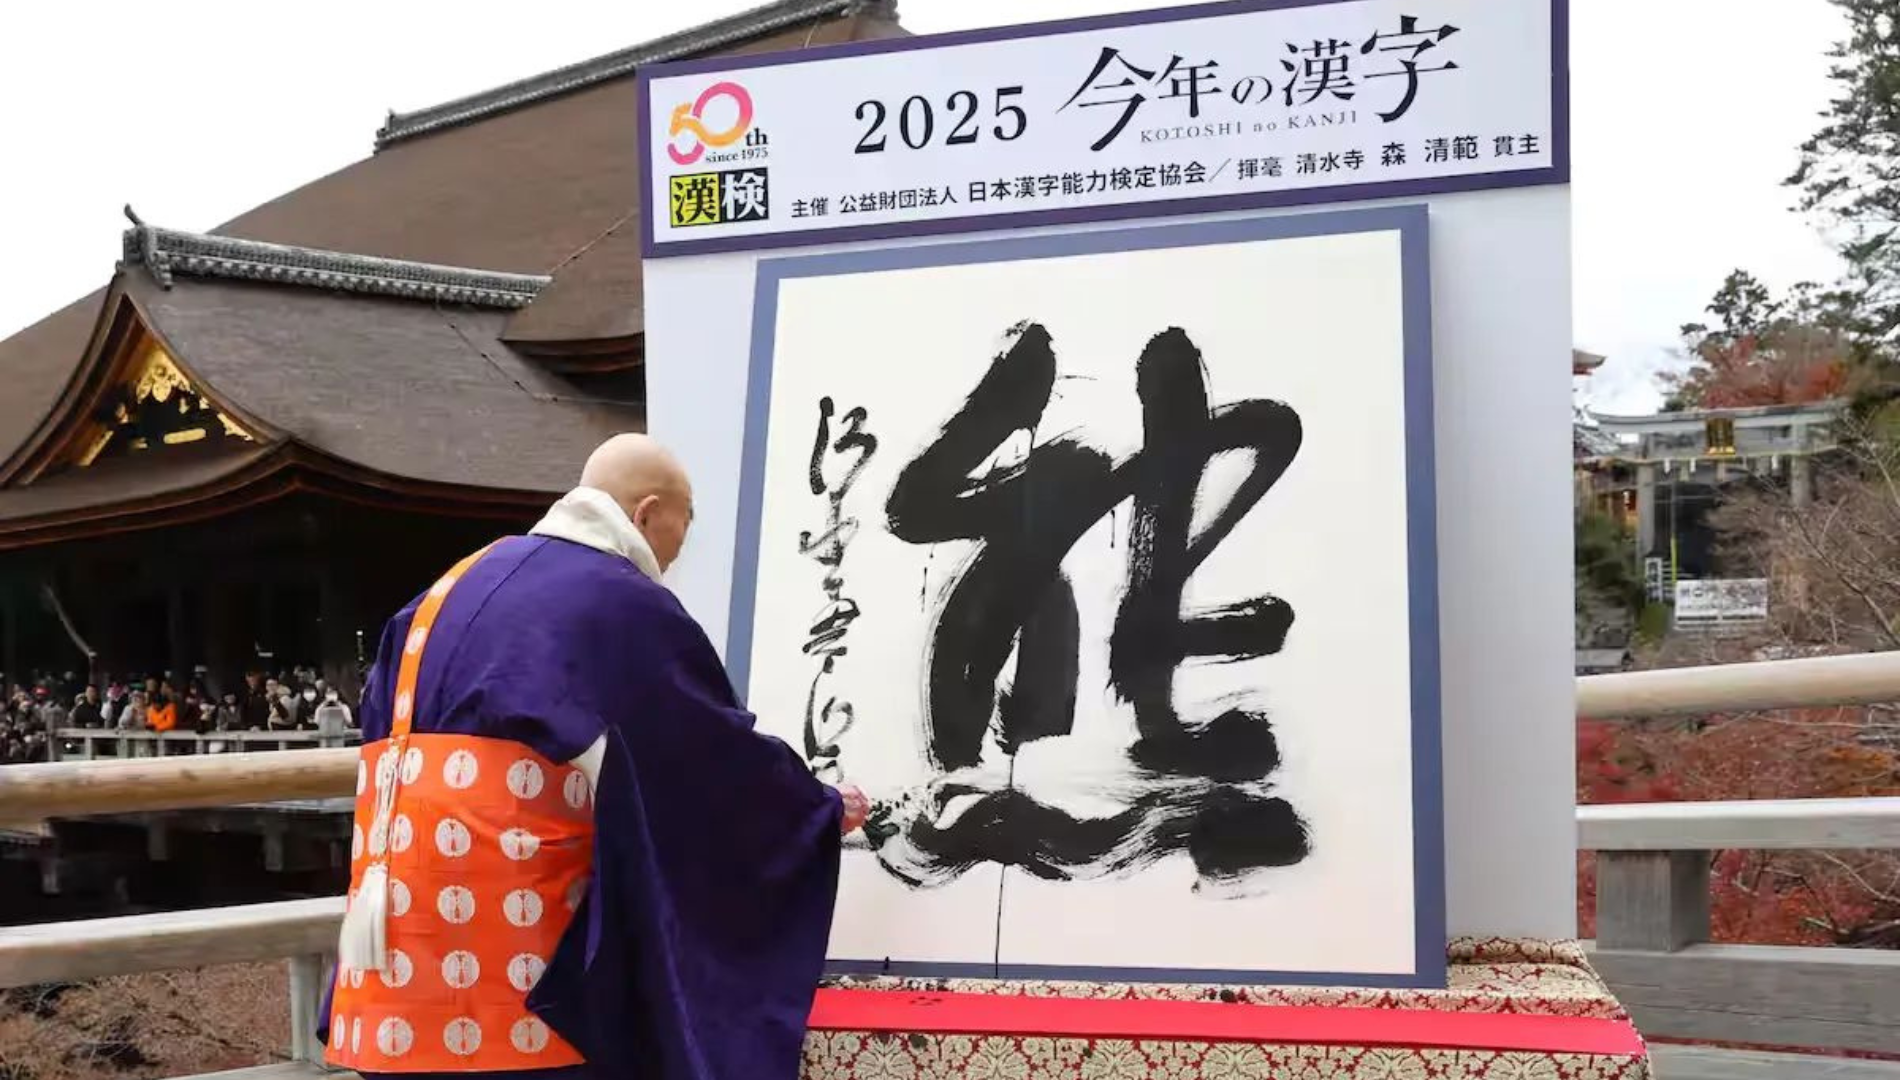 50th
since 1975
漢検
2025 今年の漢字
KOTOSHI no KANJI
主催 公益財団法人 日本漢字能力検定協会／揮毫 清水寺 森 清範 貫主
熊